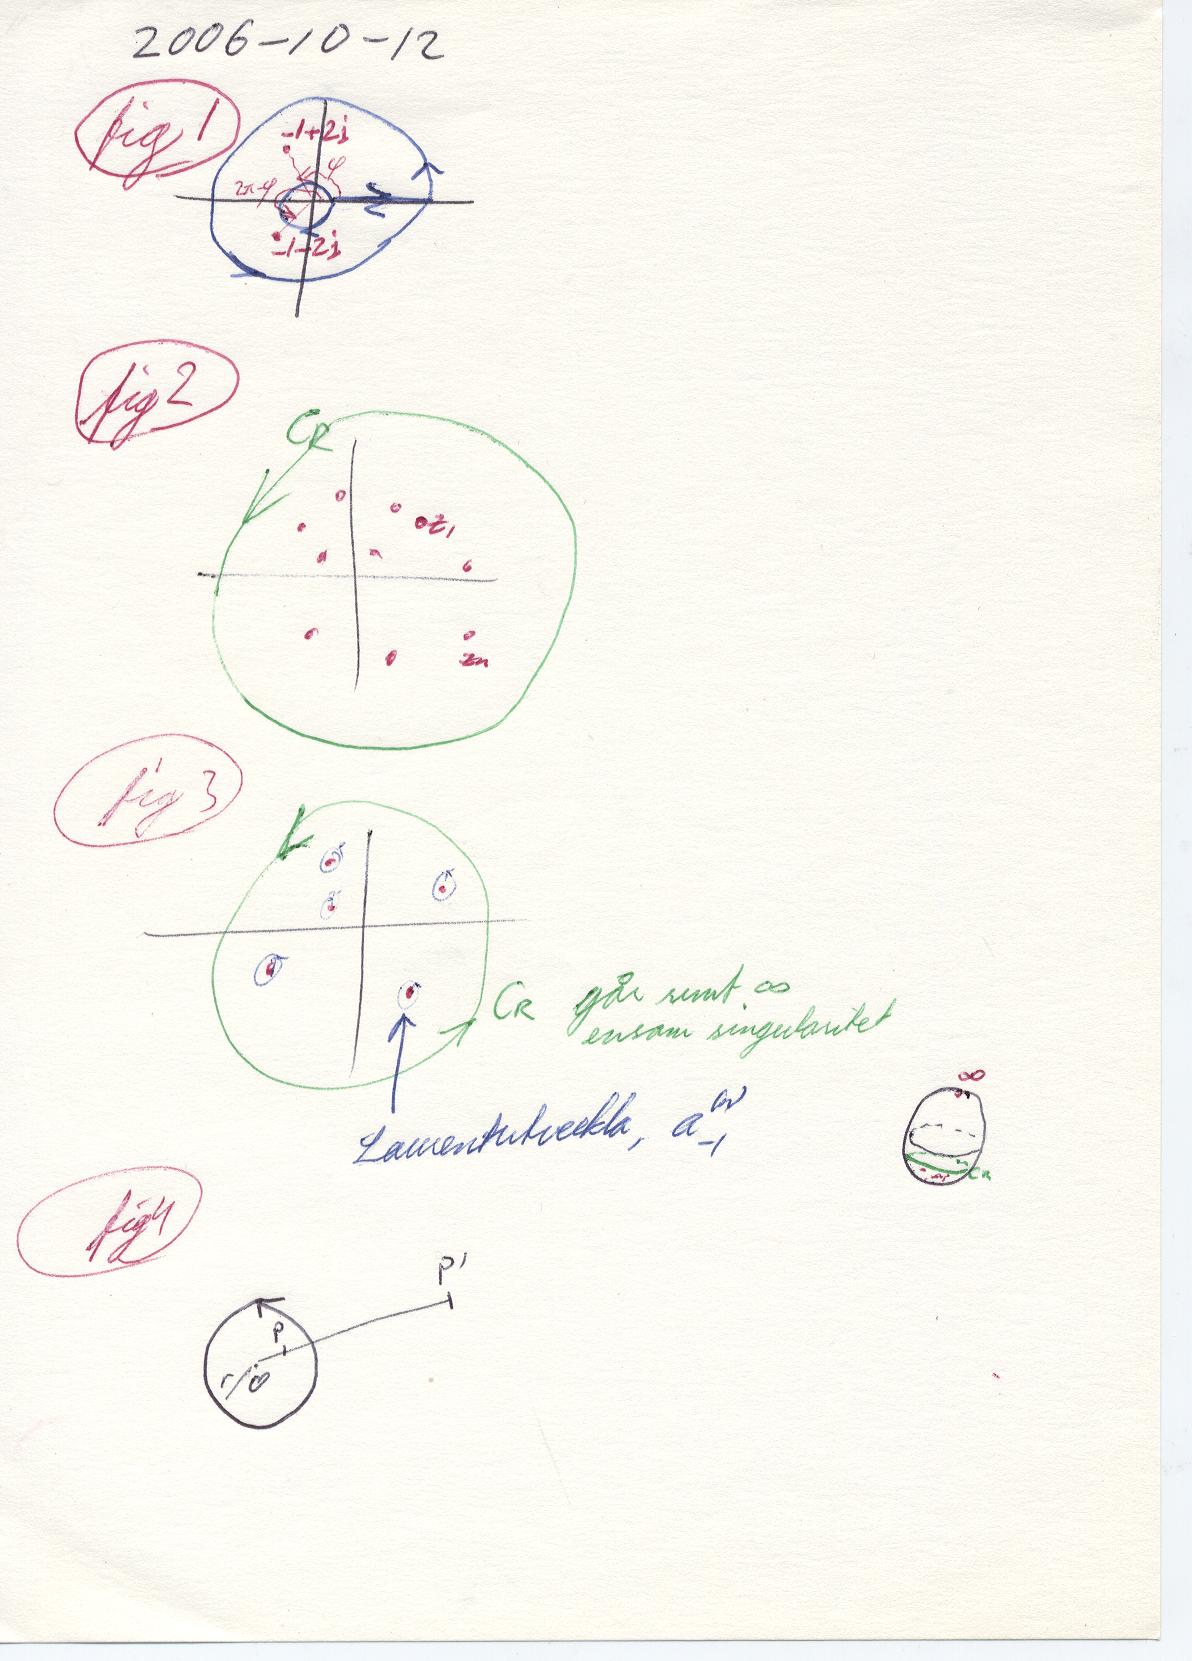 2006-10-12
fig 1
-1+2i
φ
2π-φ
-1-2i
fig 2
CR
z1
zn
fig 3
CR går runt ∞
ensam singularitet
∞
Laurentutveckla, a-1
CR
fig 4
P'
P
r